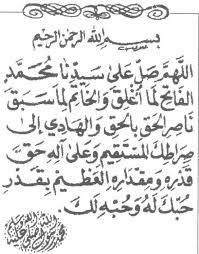 بسم الله الرحمن الرحيم
اللهم صل على سيدنا محمد
الفاتح لما أغلق والخاتم لما سبق
ناصر الحق بالحق والهادي إلى
صراطك المستقيم وعلى آله حق
قدره ومقداره العظيم بقدر
حبك له وحبه لك.